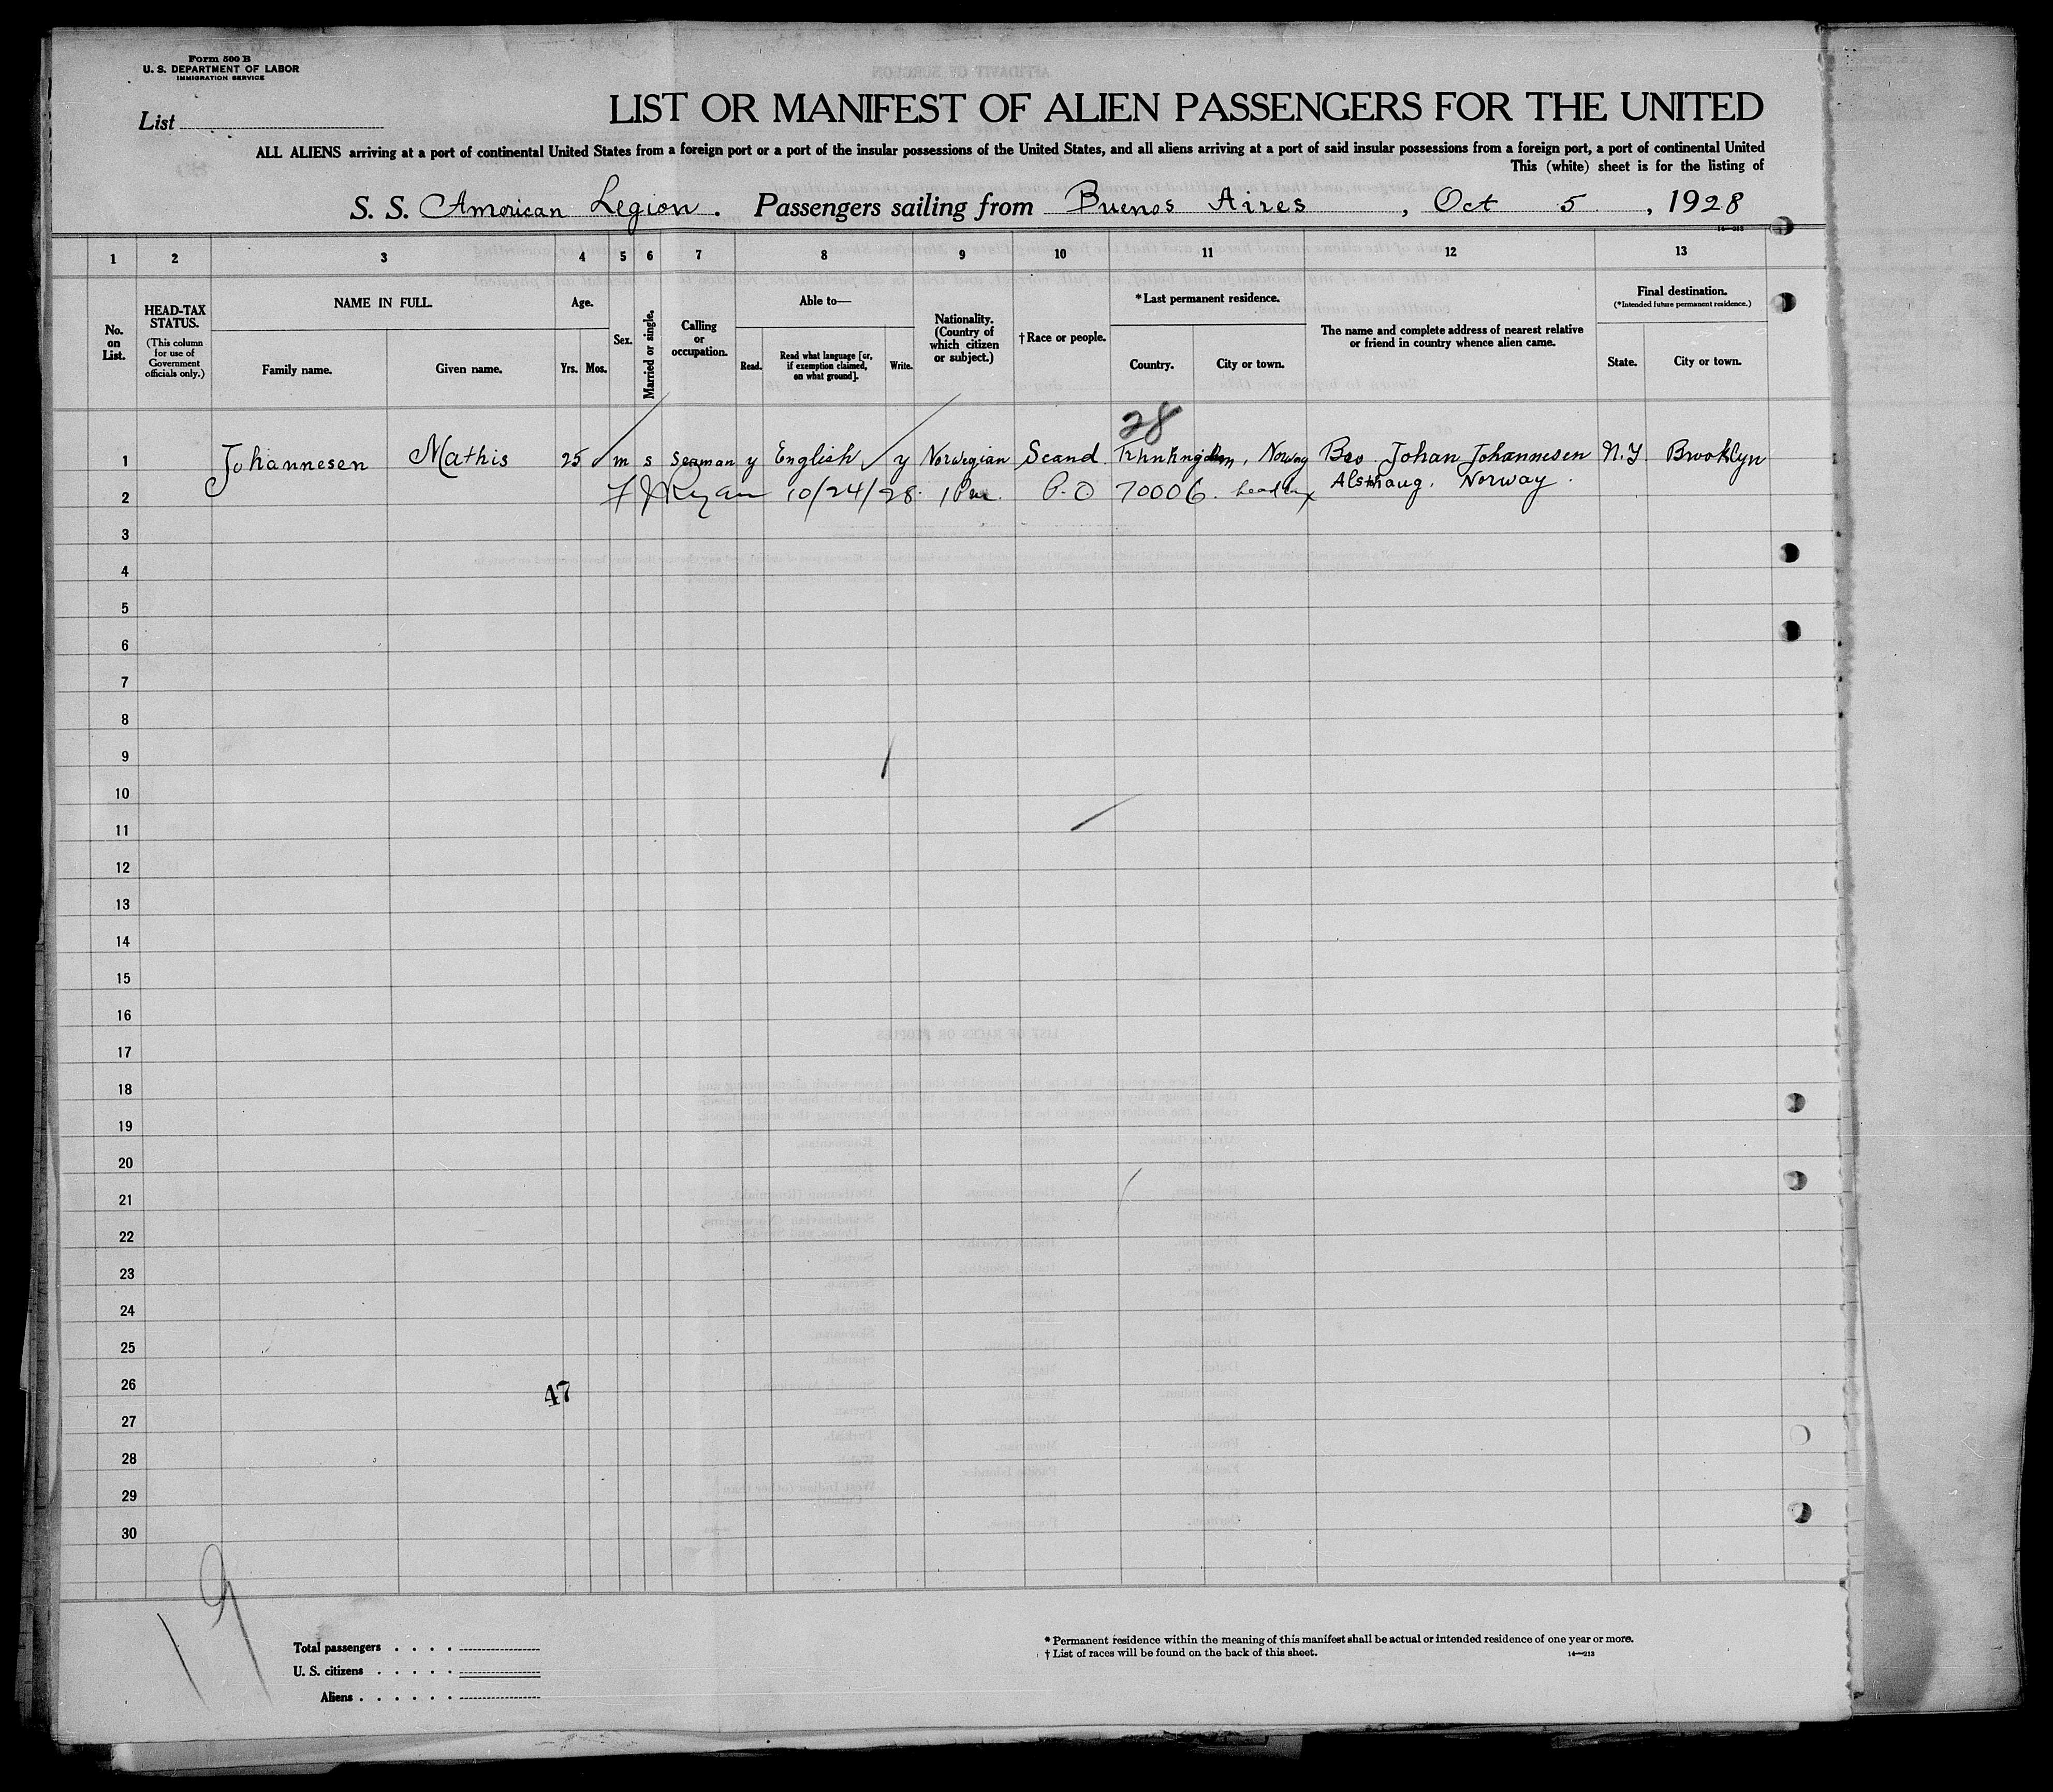 Form 500 B
U. S. DEPARTMENT OF LABOR
IMMIGRATION SERVICE
List
LIST OR MANIFEST OF ALIEN PASSENGERS FOR THE UNITED
ALL ALIENS arriving at a port of continental United States from a foreign port or a port of the insular possessions of the United States, and all aliens arriving at a port of said insular possessions from a foreign port, a port of continental United
This (white) sheet is for the listing of
S. S. American Legion. Passengers sailing from Buenos Aires, Oct 5, 1928
1 2 3 4 5 6 7 8 9 10 11 12 13
No. on List.
HEAD-TAX STATUS.
(This column for use of Government officials only.)
NAME IN FULL.
Family name. Given name.
Age.
Yrs. Mos.
Sex.
Married or single.
Calling or occupation.
Able to—
Read. Read what language [or, if exemption claimed, on what ground]. Write.
Nationality. (Country of which citizen or subject.)
†Race or people.
*Last permanent residence.
Country. City or town.
The name and complete address of nearest relative or friend in country whence alien came.
Final destination.
(*Intended future permanent residence.)
State. City or town.
28
1 Johannesen Mathis 25 m s seaman y English y Norwegian Scand Norway Bro Johan Johannesen N.Y Brooklyn
2 F J Ryan 10/24/28. 1 Pm. P.O 70006. head tax Alsthaug, Norway.
3
4
5
6
7
8
9
10
11
12
13
14
15
16
17
18
19
20
21
22
23
24
25
26
47
27
28
29
30
19
Total passengers
U. S. citizens
Aliens
*Permanent residence within the meaning of this manifest shall be actual or intended residence of one year or more.
†List of races will be found on the back of this sheet.
14—213